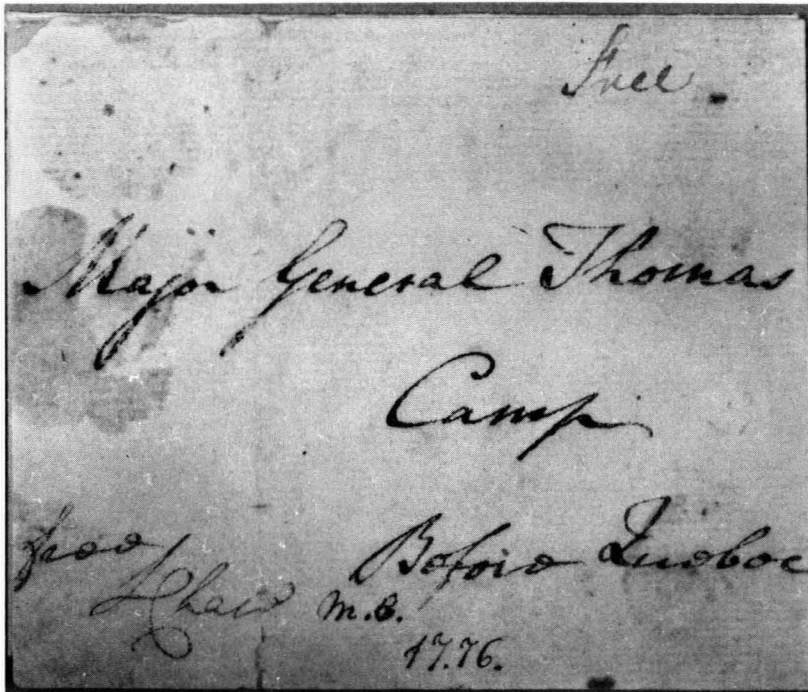 Free
Major General Thomas
Camp
free
Before Quebec
SChase m.c.
17.76.